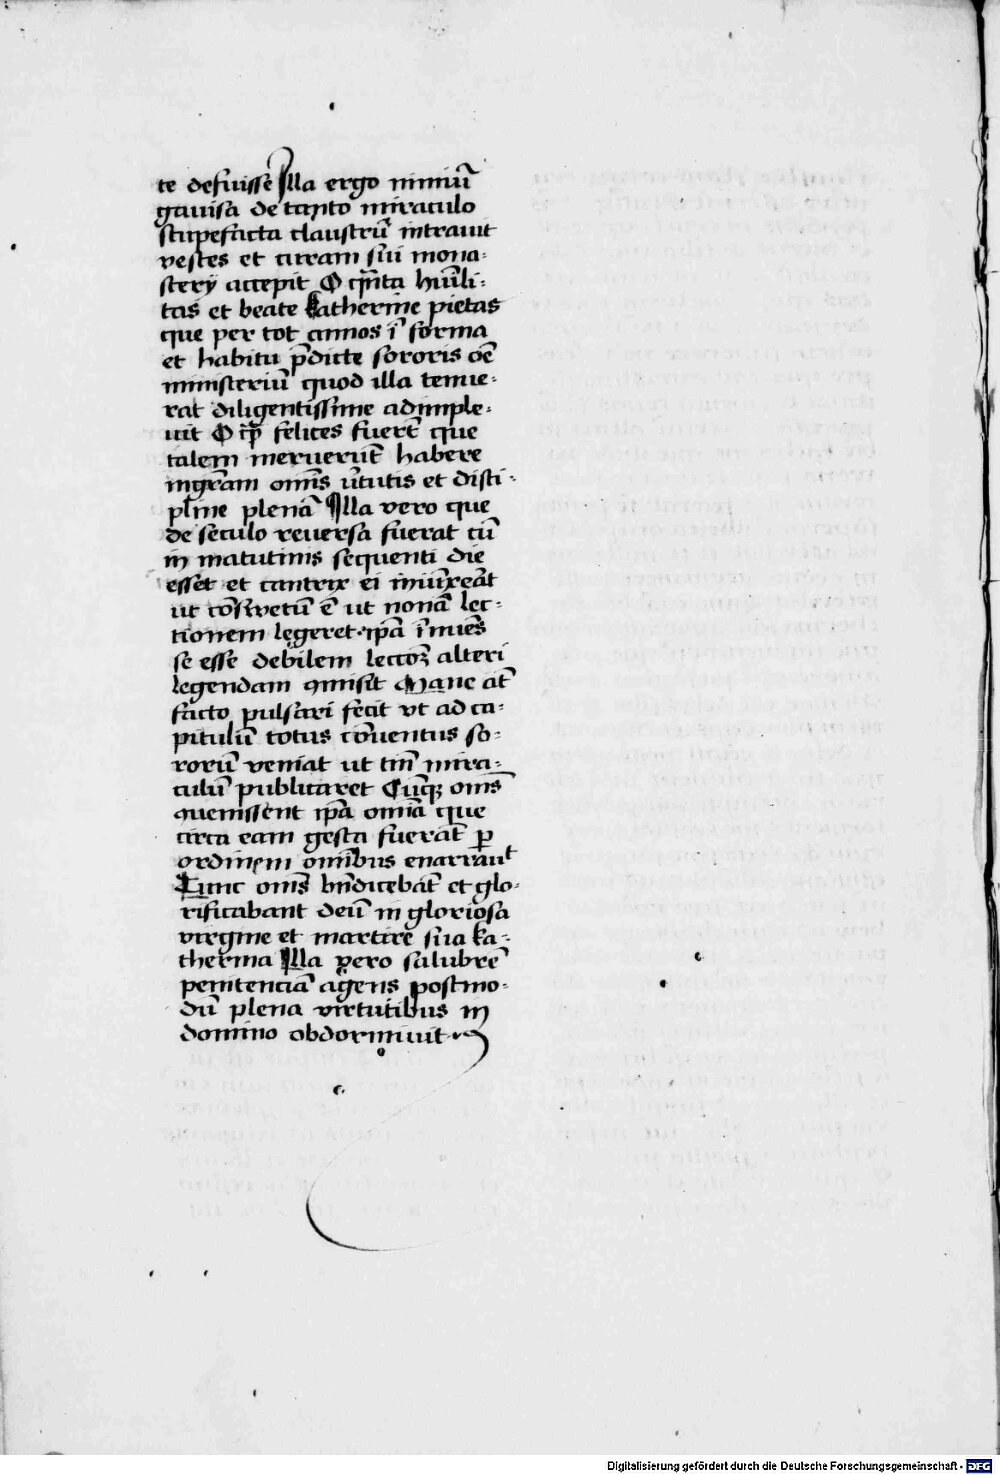 te defuissē Illa ergo nimiū
gauisa de tanto miraculo
stupefacta claustrū intrauit
vestes et curam sui mona-
sterij accepit O qn̄ta hūili-
tas et beate katherine pietas
que per tot annos ī forma
et habitu p̄dicte sororis oē
ministeriū quod illa tenue-
rat diligentissime adimple-
uit O felices fuerūt que
talem meruerūt habere
mgr̄am omīs v̄tutis et disci-
pline plenā Illa vero que
de seculo reuersa fuerat cū
in matutinis sequenti die
esset et cantrix ei iniūxerāt
ut cōsuetū ē ut nonā lec-
tionem legeret ip̄a īueniēs
se esse debilem lectōeꝫ alteri
legendam misit Mane aūt
facto pulsari fecit vt ad ca-
pitulū totus cōuentus so-
rorū veniat ut tm̄ mira-
culū publicaret Cūqꝫ om̄s
uenissent ip̄a omīa que
circa eam gesta fuerāt ꝑ
ordinem omībus enarrauit
Tunc om̄s bn̄dicebāt et glo-
rificabant deū in gloriosa
virgine et martire sua ka-
therina Illa vero salubrē
penitenciā agens postmo-
dū plena virtutibus in
domino obdormiuit
Digitalisierung gefördert durch die Deutsche Forschungsgemeinschaft - DFG